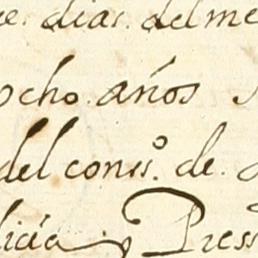 e. dias. del me
ocho. años
del cons.º de.
licia y Press